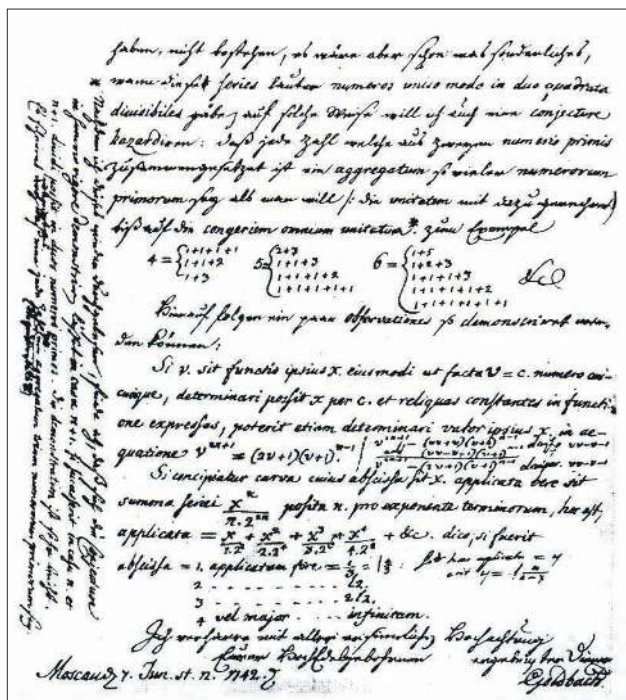 haben, nicht bestehen, es wäre aber schon was sonderliches,
wann eine series lauter numeros unico modo in duo quadrata
divisibiles gäbe auf solche Weise will ich auch eine conjecture
hazardiren: daß jede Zahl welche aus zweyen numeris primis
zusammengesetzet ist ein aggregatum so vieler numerorum
primorum sey als man will /: die unitatem mit dazu gerechnet)
biß auf die congeriem omnium unitatum*. zum Exempel
4 = { 1+1+1+1 5 = { 2+3 6 = { 1+5
1+1+2 1+1+3 1+2+3
1+3 1+1+1+2 1+1+1+3
1+1+1+1+1 1+1+1+1+2
1+1+1+1+1+1 &c
Hierauf folgen ein paar observationes so demonstriret wer-
den können:
Si v. sit functio ipsius x. eiusmodi ut facta v = c. numero cui-
cunque, determinari possit x per c. et reliquas constantes in functi-
one expressas, poterit etiam determinari valor ipsius x. in ae-
quatione v^{2n+1} = (2v+1)(v+1)^{n-1}
Si concipiatur curva cuius abscissa sit x. applicata vero sit
summa seriei x^n / n.2^{2n} posita n. pro exponente terminorum, hoc est,
applicata = x/1.2² + x²/2.2⁴ + x³/3.2⁶ + x⁴/4.2⁸ + &c. dico, si fuerit
abscissa = 1. applicatam fore = l 4/3
2 . . . . . . . . . l2.
3 . . . . . . . . . 2l2.
4 vel major . . . . infinitam.
Ich verharre mit aller ersinnlichen Hochachtung
Euer Hochedelgebohrnen ergebenster Diener
Moscau d. 7. Jun. st. n. 1742. Goldbach.
* Nachdem ich dieses wieder durchgelesen, finde ich, daß sich die conjecture
in summo rigore demonstriren lässet in casu n+1. si successerit in casu n. et
n+1 dividi possit in duos numeros primos. Die demonstration ist sehr leicht.
Es scheinet wenigstens, daß eine jede Zahl ein aggregatum trium numerorum primorum sey.